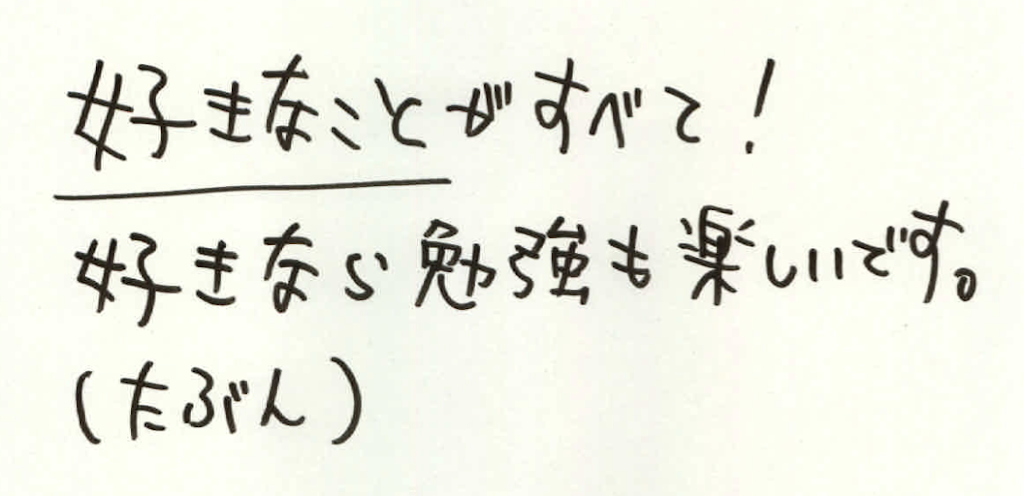 好きなことがすべて!
好きなら勉強も楽しいです。
(たぶん)